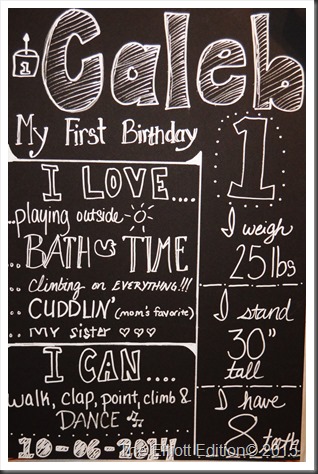 1
Caleb
My First Birthday
I LOVE....
..playing outside
..BATH TIME
..climbing on EVERYTHING!!!
..CUDDLIN' (mom's favorite)
..MY SISTER ♡♡♡
I CAN....
walk, clap, point, climb &
DANCE
10-06-2014
1
I weigh
25 lbs
I stand
30"
tall
I have
8 teeth
The Elliott Edition© 2015